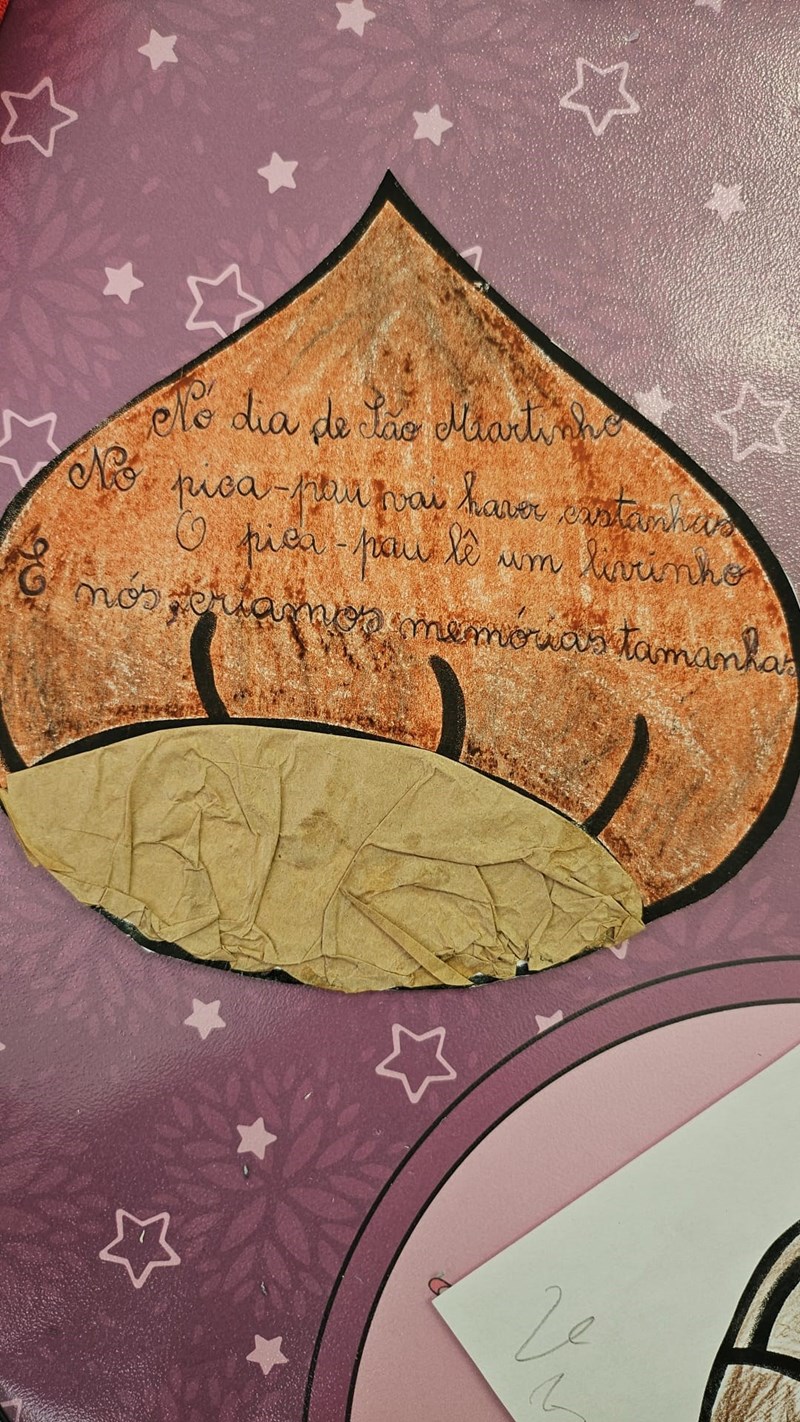 Nó dia de São Martinho
No pica-pau vai haver castanhas
O pica-pau lê um livrinho
E nós, criamos memórias tamanhas